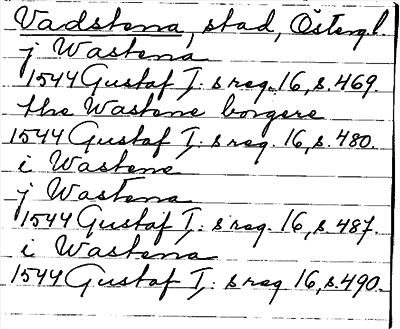 Vadstena, stad, Östergl.
j Wastena
1544 Gustaf I: s reg. 16, s. 469.
the Wastene borgere
1544 Gustaf I: s reg. 16, s. 480.
i Wastene
j Wastena
1544 Gustaf I: s reg. 16, s. 487.
i Wastena
1544 Gustaf I: s reg 16, s. 490.